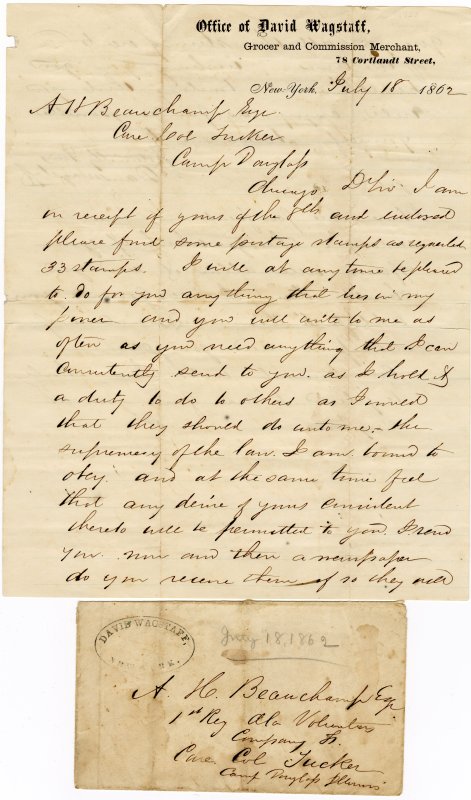 Office of David Wagstaff,
Grocer and Commission Merchant,
78 Cortlandt Street,
New-York, July 18 1862
A H Beauchamp Esqr
Care Col Tucker
Camp Douglass
Chicago D Sir I am
in receipt of yours of the 8th and enclosed
please find some postage stamps as requested
33 stamps. I will at any time be pleased
to do for you anything that lies in my
power and you will write to me as
often as you need anything that I can
consistently send to you. as I hold it
a duty to do to others as I would
that they should do unto me. - the
supremacy of the law I am bound to
obey and at the same time feel
that any desire of yours consistent
thereto will be permitted to you. I send
you now and then a newspaper
do you receive them if so they will
DAVID WAGSTAFF,
NEW YORK.
July 18, 1862
A. H. Beauchamp Esqr
1st Reg Ala Volunteers
Company
Care Col Tucker
Camp Douglass Illinois